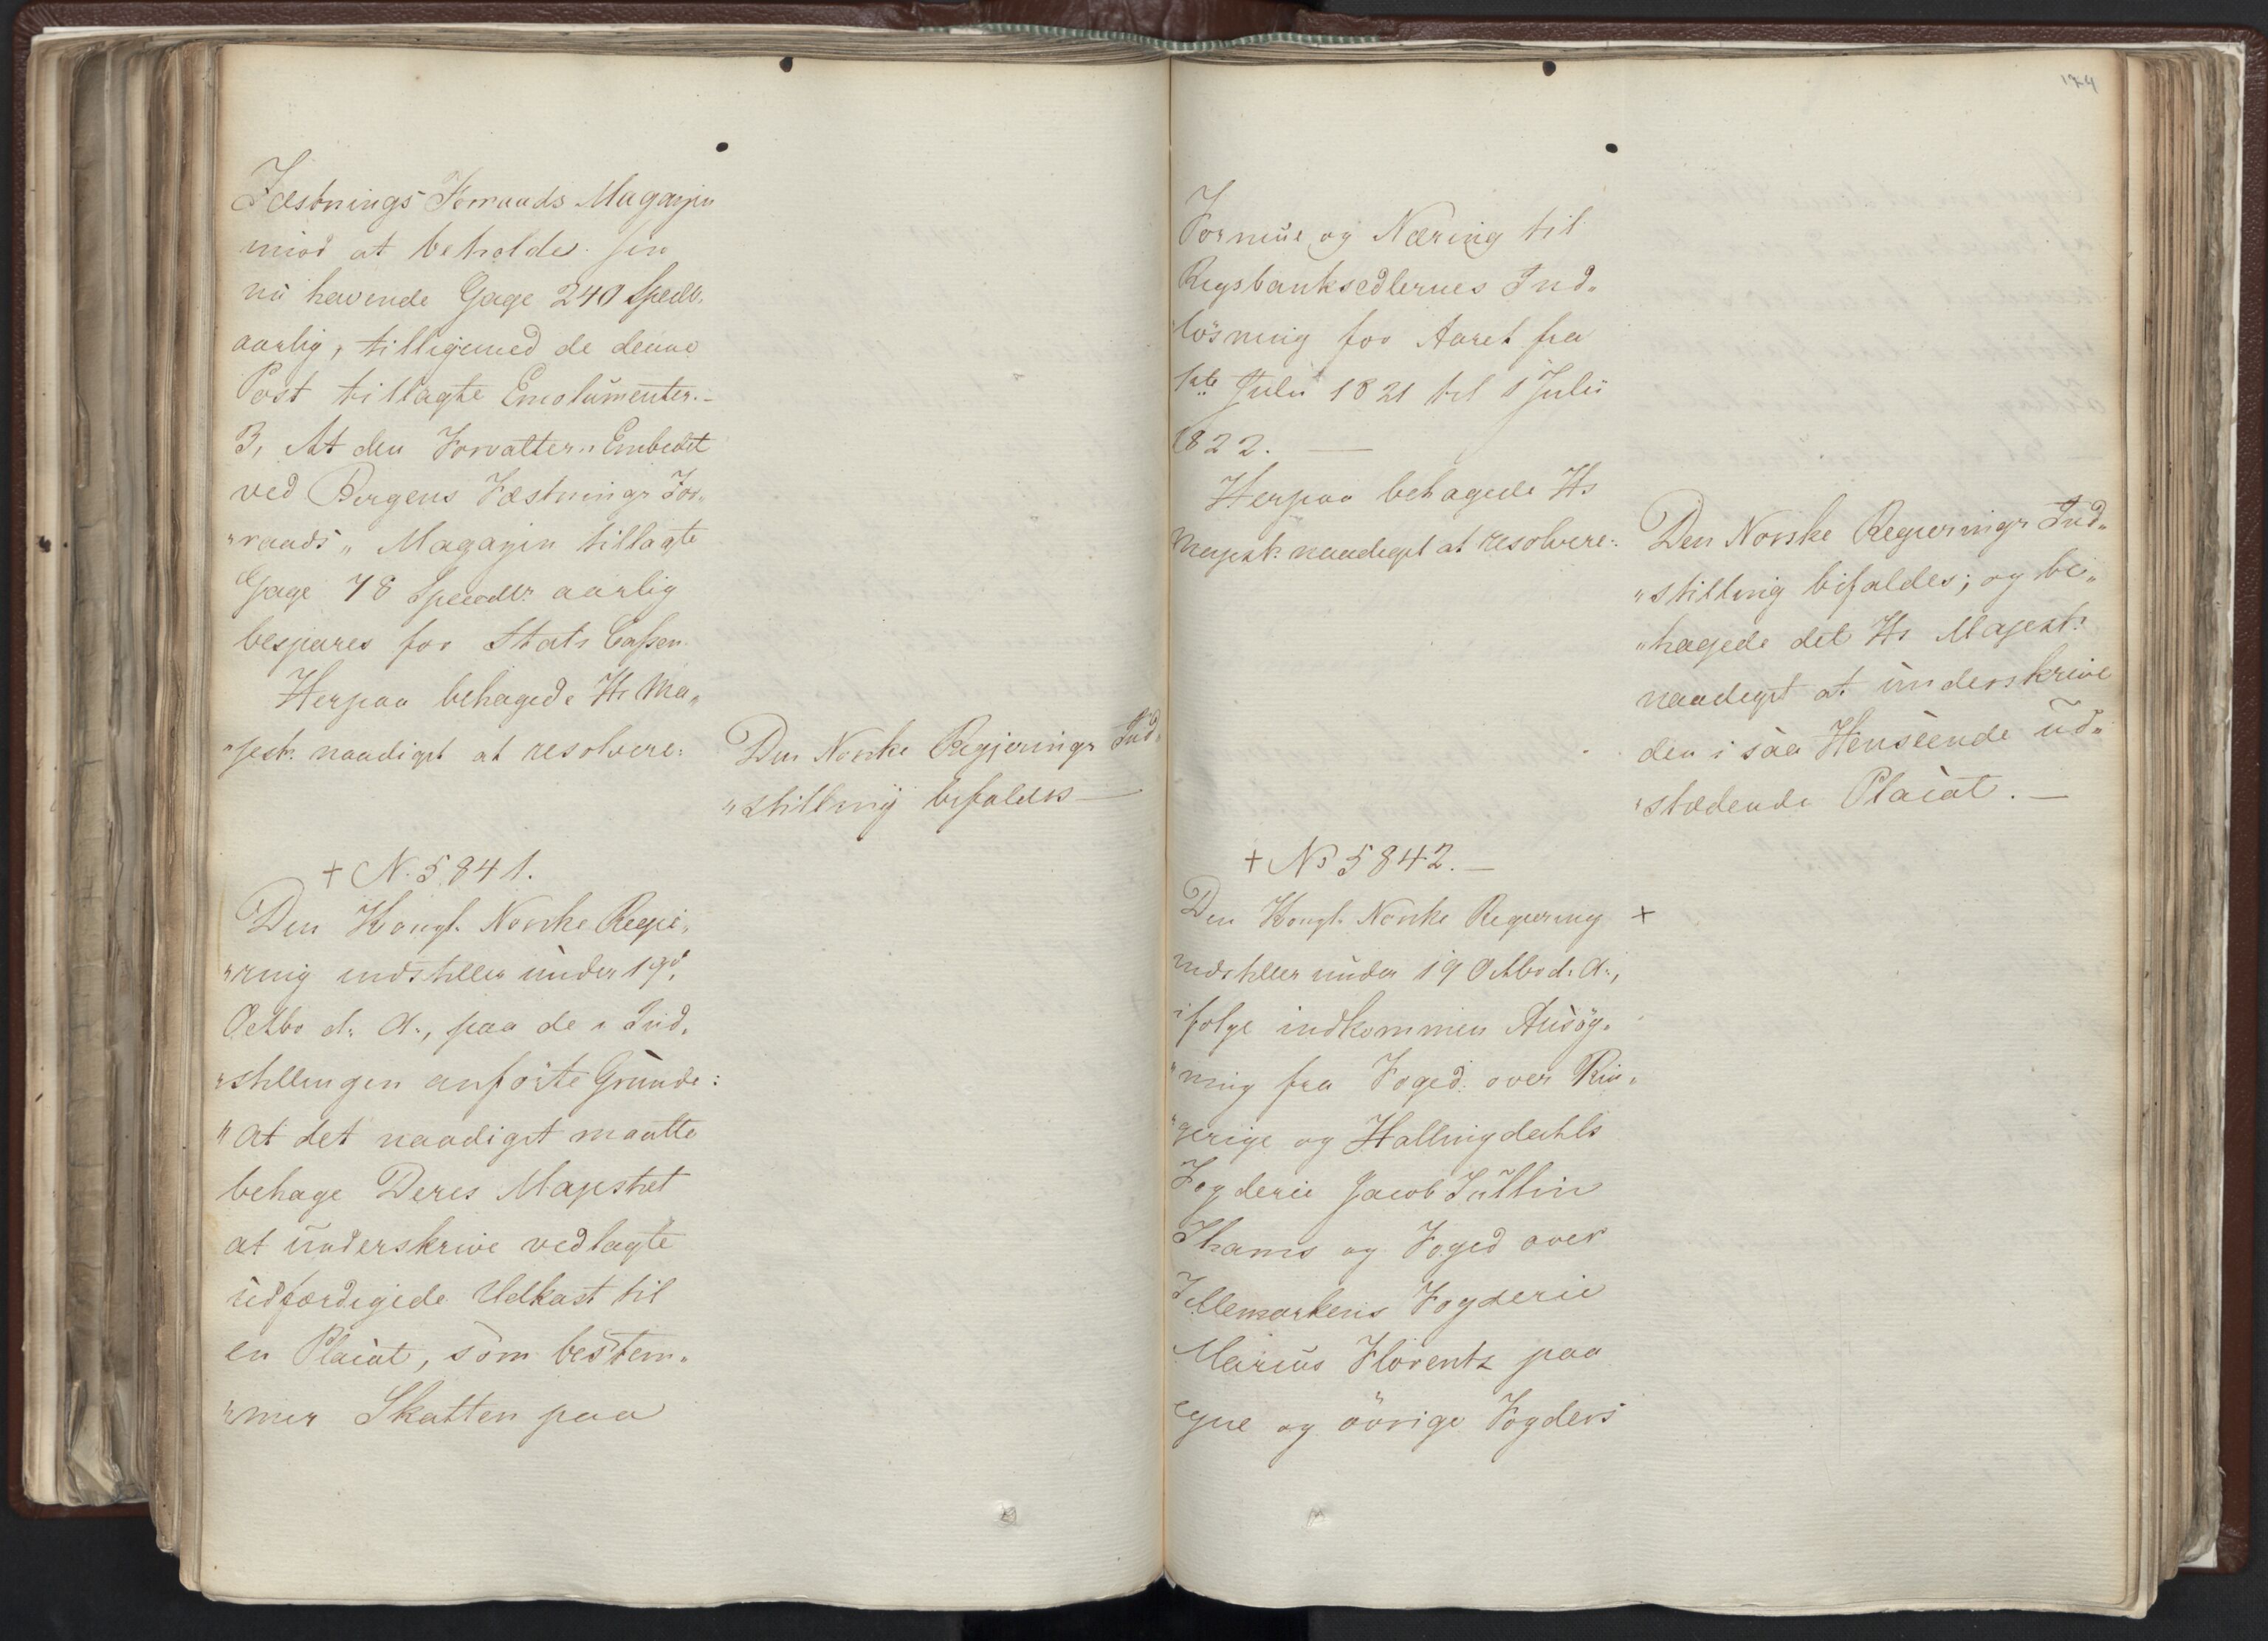 Fæstnings Forraads Magazin
mod at beholde sin
nu havende Gage 240 Spedlr.
aarlig, tilligemed de denne
Post tillagte Emolumenter.-
3, At den Forvalter„Embedet
ved Bergens Fæstnings For„
„raads„ Magazin tillagte
Gage 78 Speciedlr aarlig
bespares for Stats Cassen.
Herpaa behagede Hs Ma„
„jest. naadigst at resolvere:
Den Norske Regjerings Ind„
„stilling bifaldes —
+ N. 5841.
Den Kongl. Norske Regie„
„ring indstiller under 19d.
Octbr d. A., paa de i Ind„
„stillingen anførte Grunde:
„at det naadigst maatte
behage Deres Majestæt
at underskrive vedlagte
udfærdigede Udkast til
en Placat, som bestem„
„mer Skatten paa
174
Formue og Næring til
Rigsbanksedlernes Ind„
„løsning for Aaret fra
1ste Julii 1821 til 1 Julii
1822. —
Herpaa behagede Hs
Majest. naadigst at resolvere:
Den Norske Regierings Ind„
„stilling bifaldes; og be„
„hagede det Hs Majest:
naadigst at underskrive
den i saa Henseende ud„
„stædende Placat. —
+ No 5842. —
Den Kongl. Norske Regiering +
indstiller under 19 Octbr d. A.,
ifølge indkommen Ansøg„
„ning fra Foged over Rin„
„gerige og Hallingdahls
Fogderie Jacob Tullin
Thams og Foged over
Tellemarkens Fogderie
Marius Florentz paa
egne og øvrige Fogders